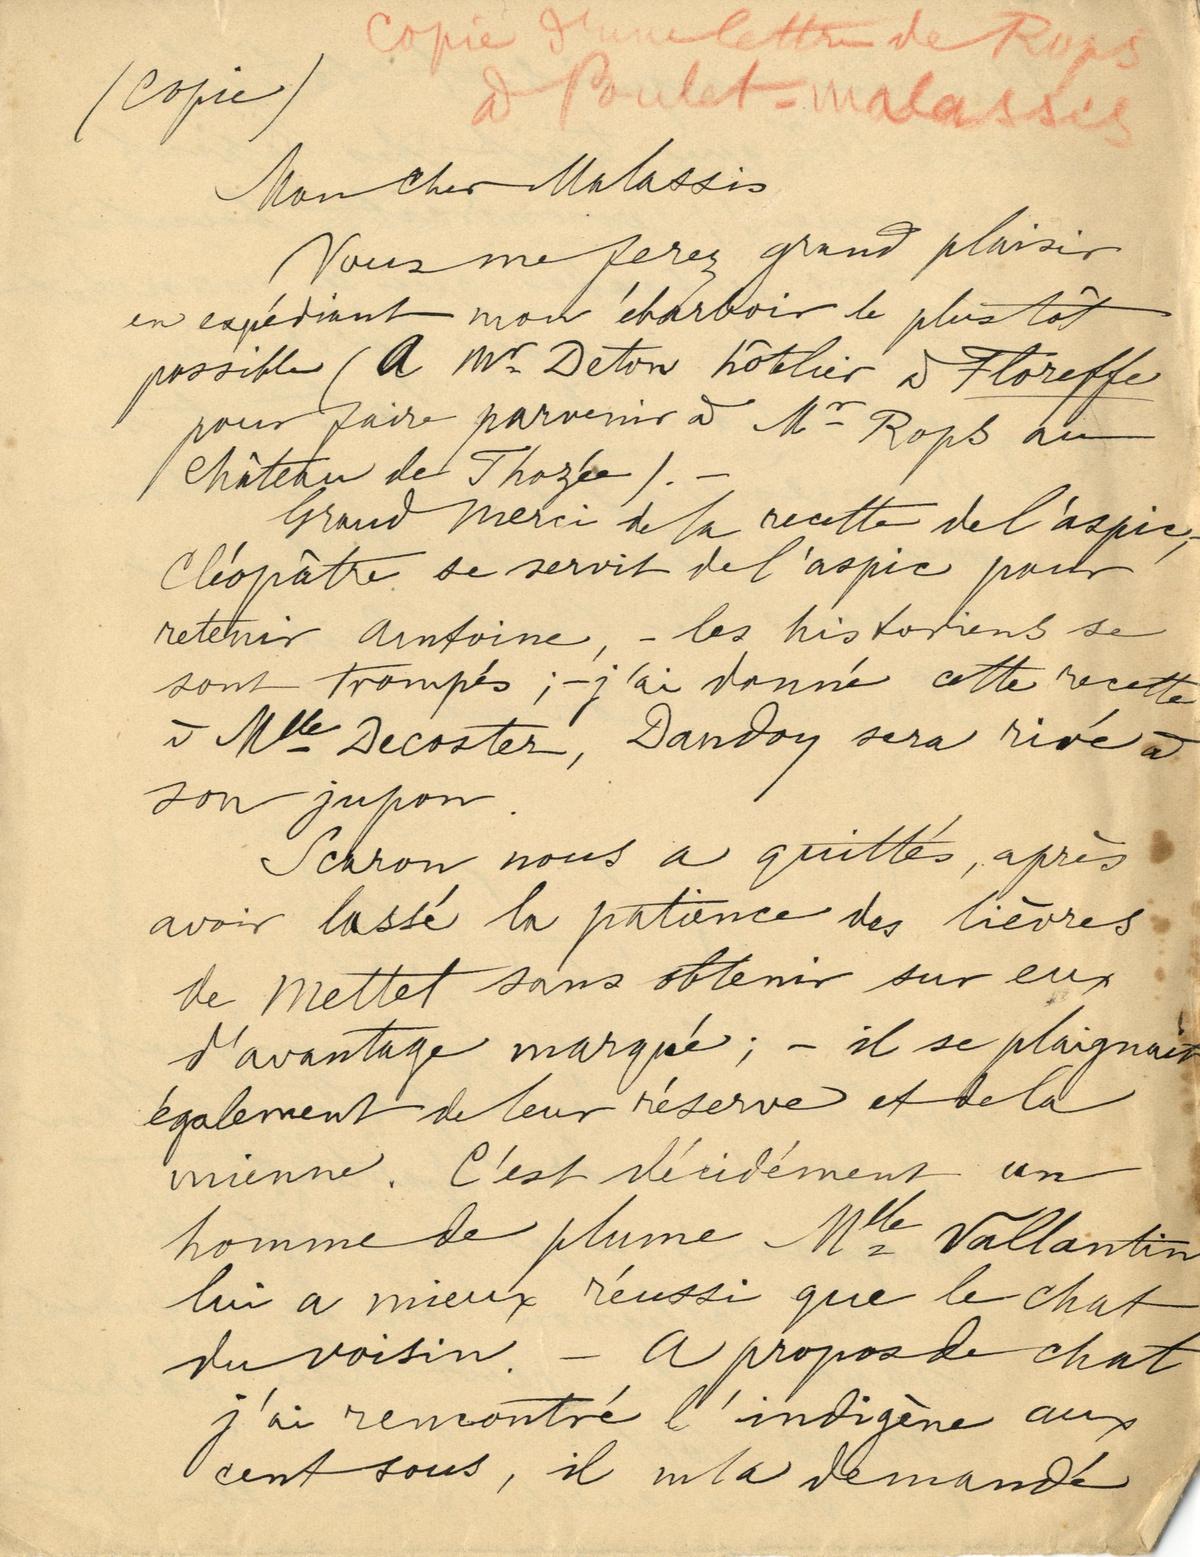 Copie d'une lettre de Rops
à Poulet-malassis
(Copie)
Mon Cher Malassis
Vous me ferez grand plaisir
en expédiant mon ébarboir le plus tôt
possible (A Mr Deton hôtelier à Floreffe
pour faire parvenir à Mr Rops au
Château de Thozée). -
Grand merci de la recette de l'aspic, -
Cléopâtre se servit de l'aspic pour
retenir Antoine, - les historiens se
sont trompés ; - j'ai donné cette recette
à Mlle Decoster, Dandoy sera rivé à
son jupon.
Scaron nous a quittés, après
avoir lassé la patience des lièvres
de Mettet sans obtenir sur eux
d'avantage marqué ; - il se plaignait
également de leur réserve et de la
mienne. C'est décidément un
homme de plume Mlle Vallantin
lui a mieux réussi que le chat
du voisin. - A propos de chat
j'ai rencontré l'indigène aux
cent sous, il m'a demandé